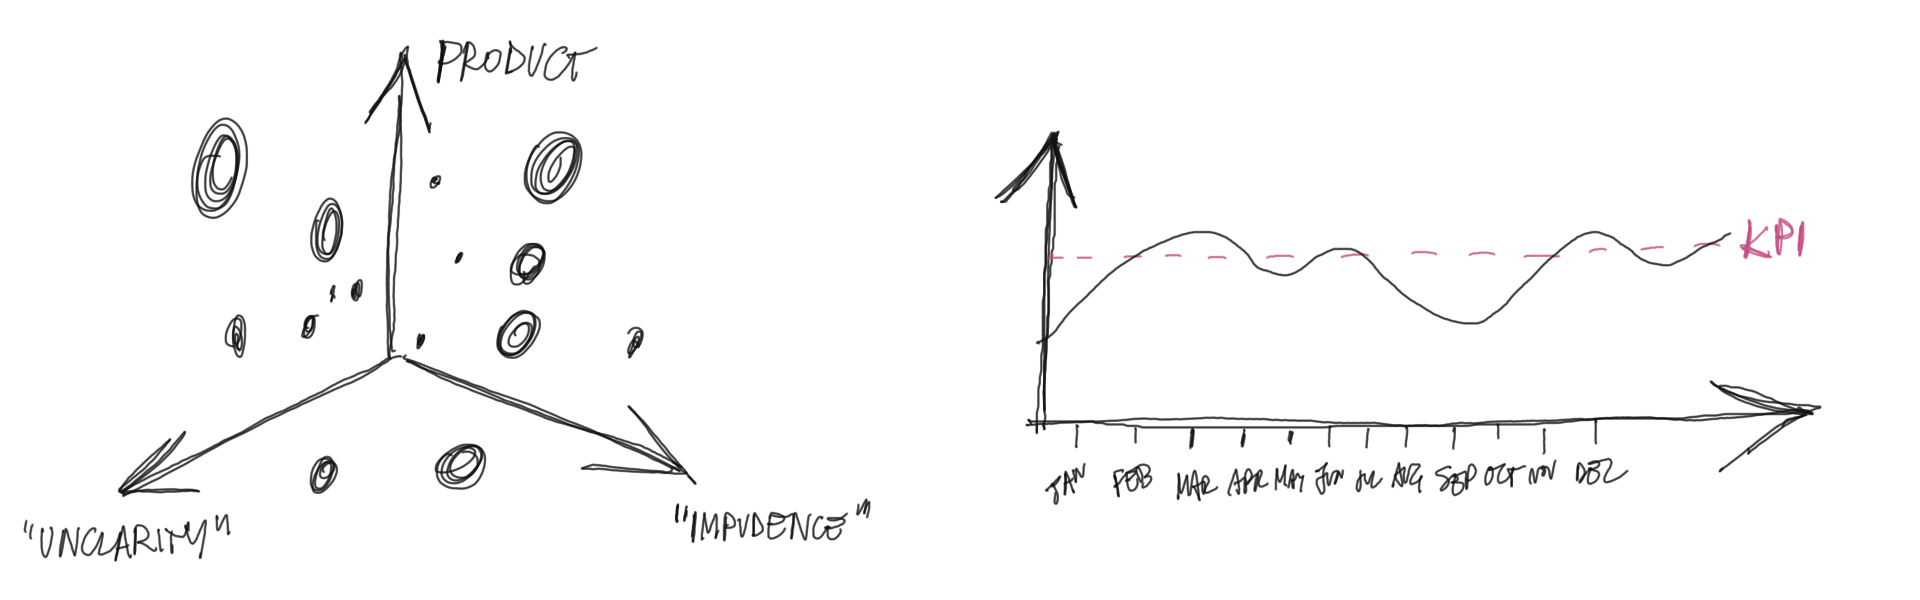 PRODUCT
"UNCLARITY"
"IMPUDENCE"
KPI
JAN FEB MAR APR MAY JUN JUL AUG SEP OCT NOV DEC